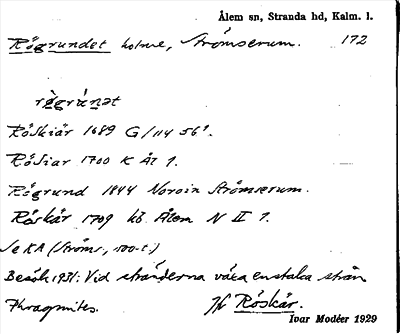 Ålem sn, Stranda hd, Kalm. l.
Rögrundet holme, Strömserum. 172
Röskiär 1689 G/114 56¹.
Rösiar 1700 K ÅT 1.
Rögrund 1844 Noroin Strömserum.
Röskär 1709 kb Ålem N II 1.
Se KA (Ströms, 1700-t.)
Besök 1931: Vid stränderna växa enstaka strån
Phragmites. Jfr Röskär.
Ivar Modéer 1929